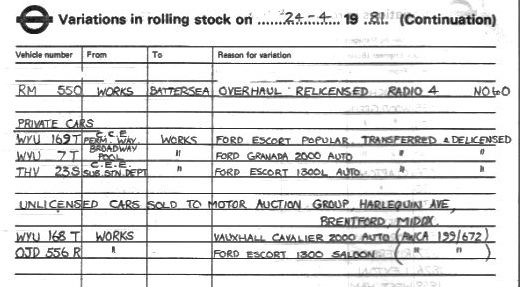 Variations in rolling stock on 24-4 19 81. (Continuation)
Vehicle number From To Reason for variation
RM 550 WORKS BATTERSEA OVERHAUL RELICENSED RADIO 4 NO60
PRIVATE CARS
WYU 169T C.C.E. PERM. WAY. WORKS FORD ESCORT POPULAR TRANSFERRED & DELICENSED
WYU 7T BROADWAY POOL " FORD GRANADA 2000 AUTO " "
THV 23S C.E.E. SUB.STN.DEPT " FORD ESCORT 1300L AUTO " "
UNLICENSED CARS SOLD TO MOTOR AUCTION GROUP, HARLEQUIN AVE,
BRENTFORD, MIDDX.
WYU 168 T WORKS VAUXHALL CAVALIER 2000 AUTO (AWCA 199/672)
OJD 556 R " FORD ESCORT 1300 SALOON ( " " )